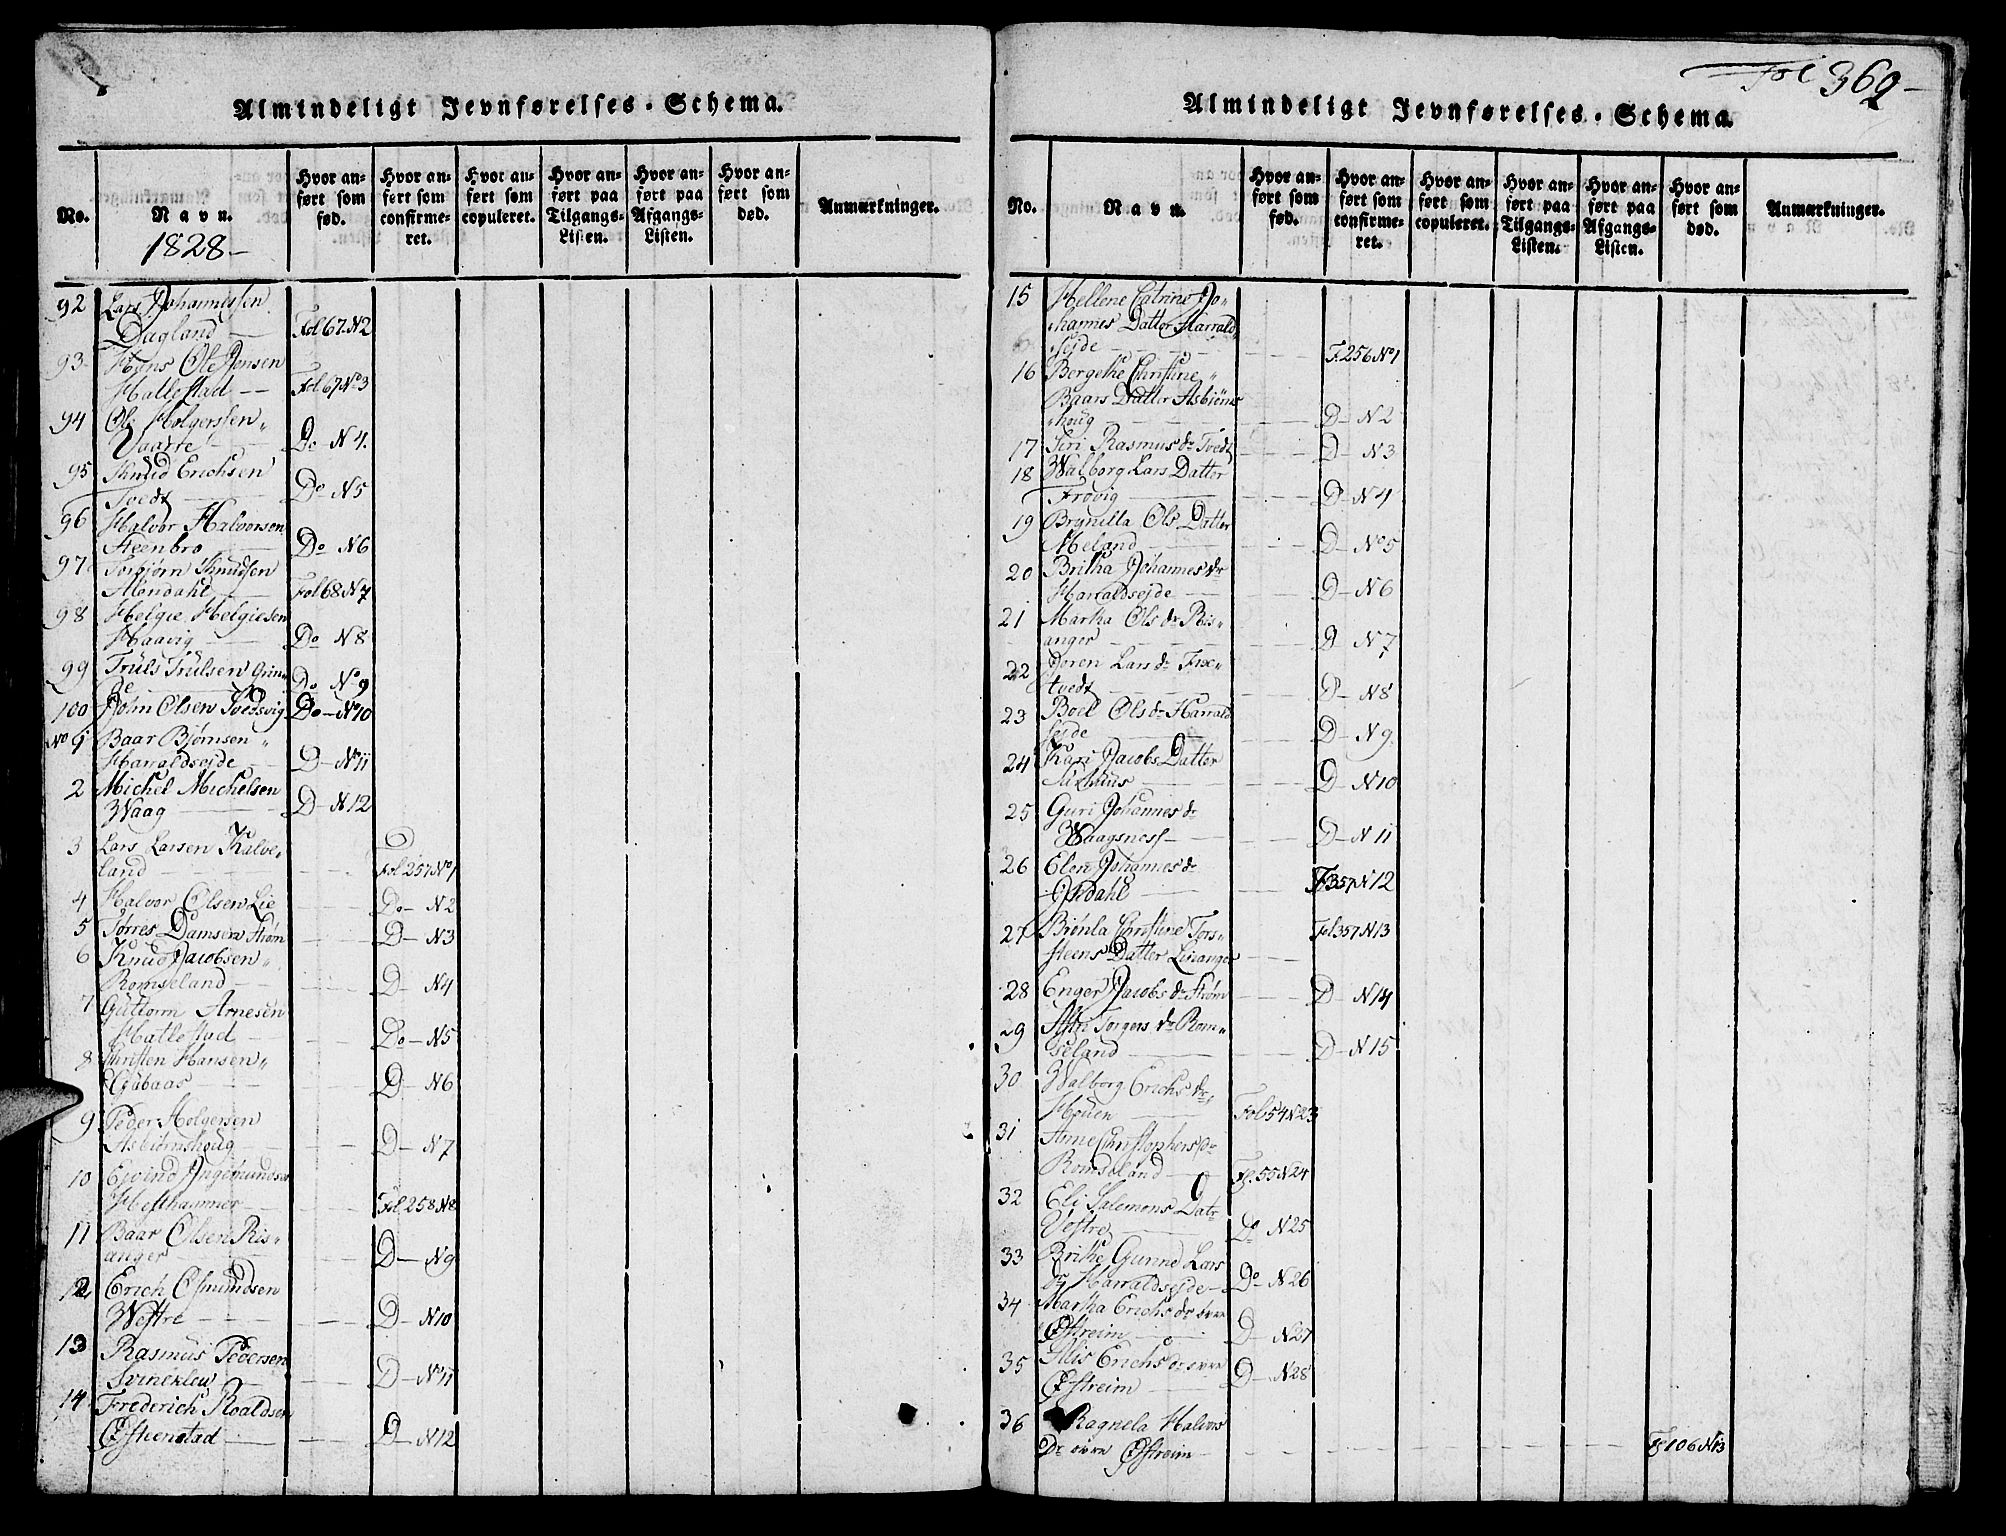 Almindeligt Jevnførelses-Schema.
No.
Navn.
1828-
Hvor anført som fød.
Hvor anført som confirmeret.
Hvor anført som copuleret.
Hvor anført paa Tilgangs-Listen.
Hvor anført paa Afgangs-Listen.
Hvor anført som død.
Anmærkninger.
92 Lars Johannessen
Dagland — Fol 67. N2
93 Hans Ole Jensen
Hallestad — Fol 67 No 3
94 Ole Holgerssen
Vaarre — Do N 4.
95 Knud Erichsen
Tvedt — Do N5
96 Halvor Halvorsen
Steenbro Do N6
97 Torbjørn Knudsen
Alendahl — Fol 68 N7
98 Helgie Helgiesen
Haavig — Do N8
99 Truls Trulsen Grin-
de — Do No 9
100 John Olsen Tvedsvig Do - No 10
No 1 Baar Bjørnsen
Harraldsejde — D - No 11
2 Michel Michelsen
Waag — D - N 12
3 Lars Larsen Kalve-
land — Fol 257 No 1
4 Halvor Olsen Lie — Do - N2
5 Tørres Damsen Strøm — D - N3
6 Knud Jacobsen
Romseland — D - N4
7 Guttorm Arnesen
Hatlestad — Do - N5
8 Christen Hansen
Gabaas — D - N6
9 Peder Holgersen
Asbiørnshoug — D - N7
10 Ejvind Ingemundsen
Hesthammer — Fol 258 N8
11 Baar Olsen Ris-
anger — D - N9
12 Erich Osmundsen
Westre — D - N10
13 Rasmus Pedersen
Svinekleu — D - No 11
14 Frederich Roaldsen
Østhenstad — D - N12
Fol 369-
Almindeligt Jevnførelses-Schema.
No.
Navn.
Hvor anført som fød.
Hvor anført som confirmeret.
Hvor anført som copuleret.
Hvor anført paa Tilgangs-Listen.
Hvor anført paa Afgangs-Listen.
Hvor anført som død.
Anmærkninger.
15 Hellene Catrine Jo-
hannes Datter Harrald
sejde — F. 256 No 1
16 Bergethe Christine
Baars Datter Asbiørns
houg — D - N2
17 Siri Rasmus dr Tvedt — D - N3
18 Walborg Lars Datter
Frøvig — D - N4
19 Brynilla Ols Datter
Meland — D - No 5
20 Britha Johannes dr
Harraldsejde — D - N6
21 Martha Ols dr Ris-
anger — D N7
22 Joren Lars dr Fixe-
tvedt — D - N8
23 Boel Ols dr Harrald
sejde — D - N9.
24 Kari Jacobs Datter
— D - N10
25 Guri Johannes dr
Waagsness — D - N11
26 Elen Johannes dr
Opdahl — F 357 N12
27 Brønla Christine Tors-
steens Datter Lisanger — Fol 357 N13
28 Enger Jacobs dr Strøm — D - N14
29 Astri Torgers dr Rom-
seland — D - N15
30 Walborg Erichs dr
Houen — Fol 54 N23
31 Anne Christophers dr
Romseland — Fol. 55 N24
32 Eli Salemons Datr
Vestre — Do N25
33 Brithe Gunnel Lars
dr Harraldsejde — Do N26
34 Martha Erichs dr øvre
Østreim — D - N27
35 Alis Erichs dr øvre
Østreim — D - N28
36 Ragnela Halvors
Dr øvre Østreim — Fol 106 N13